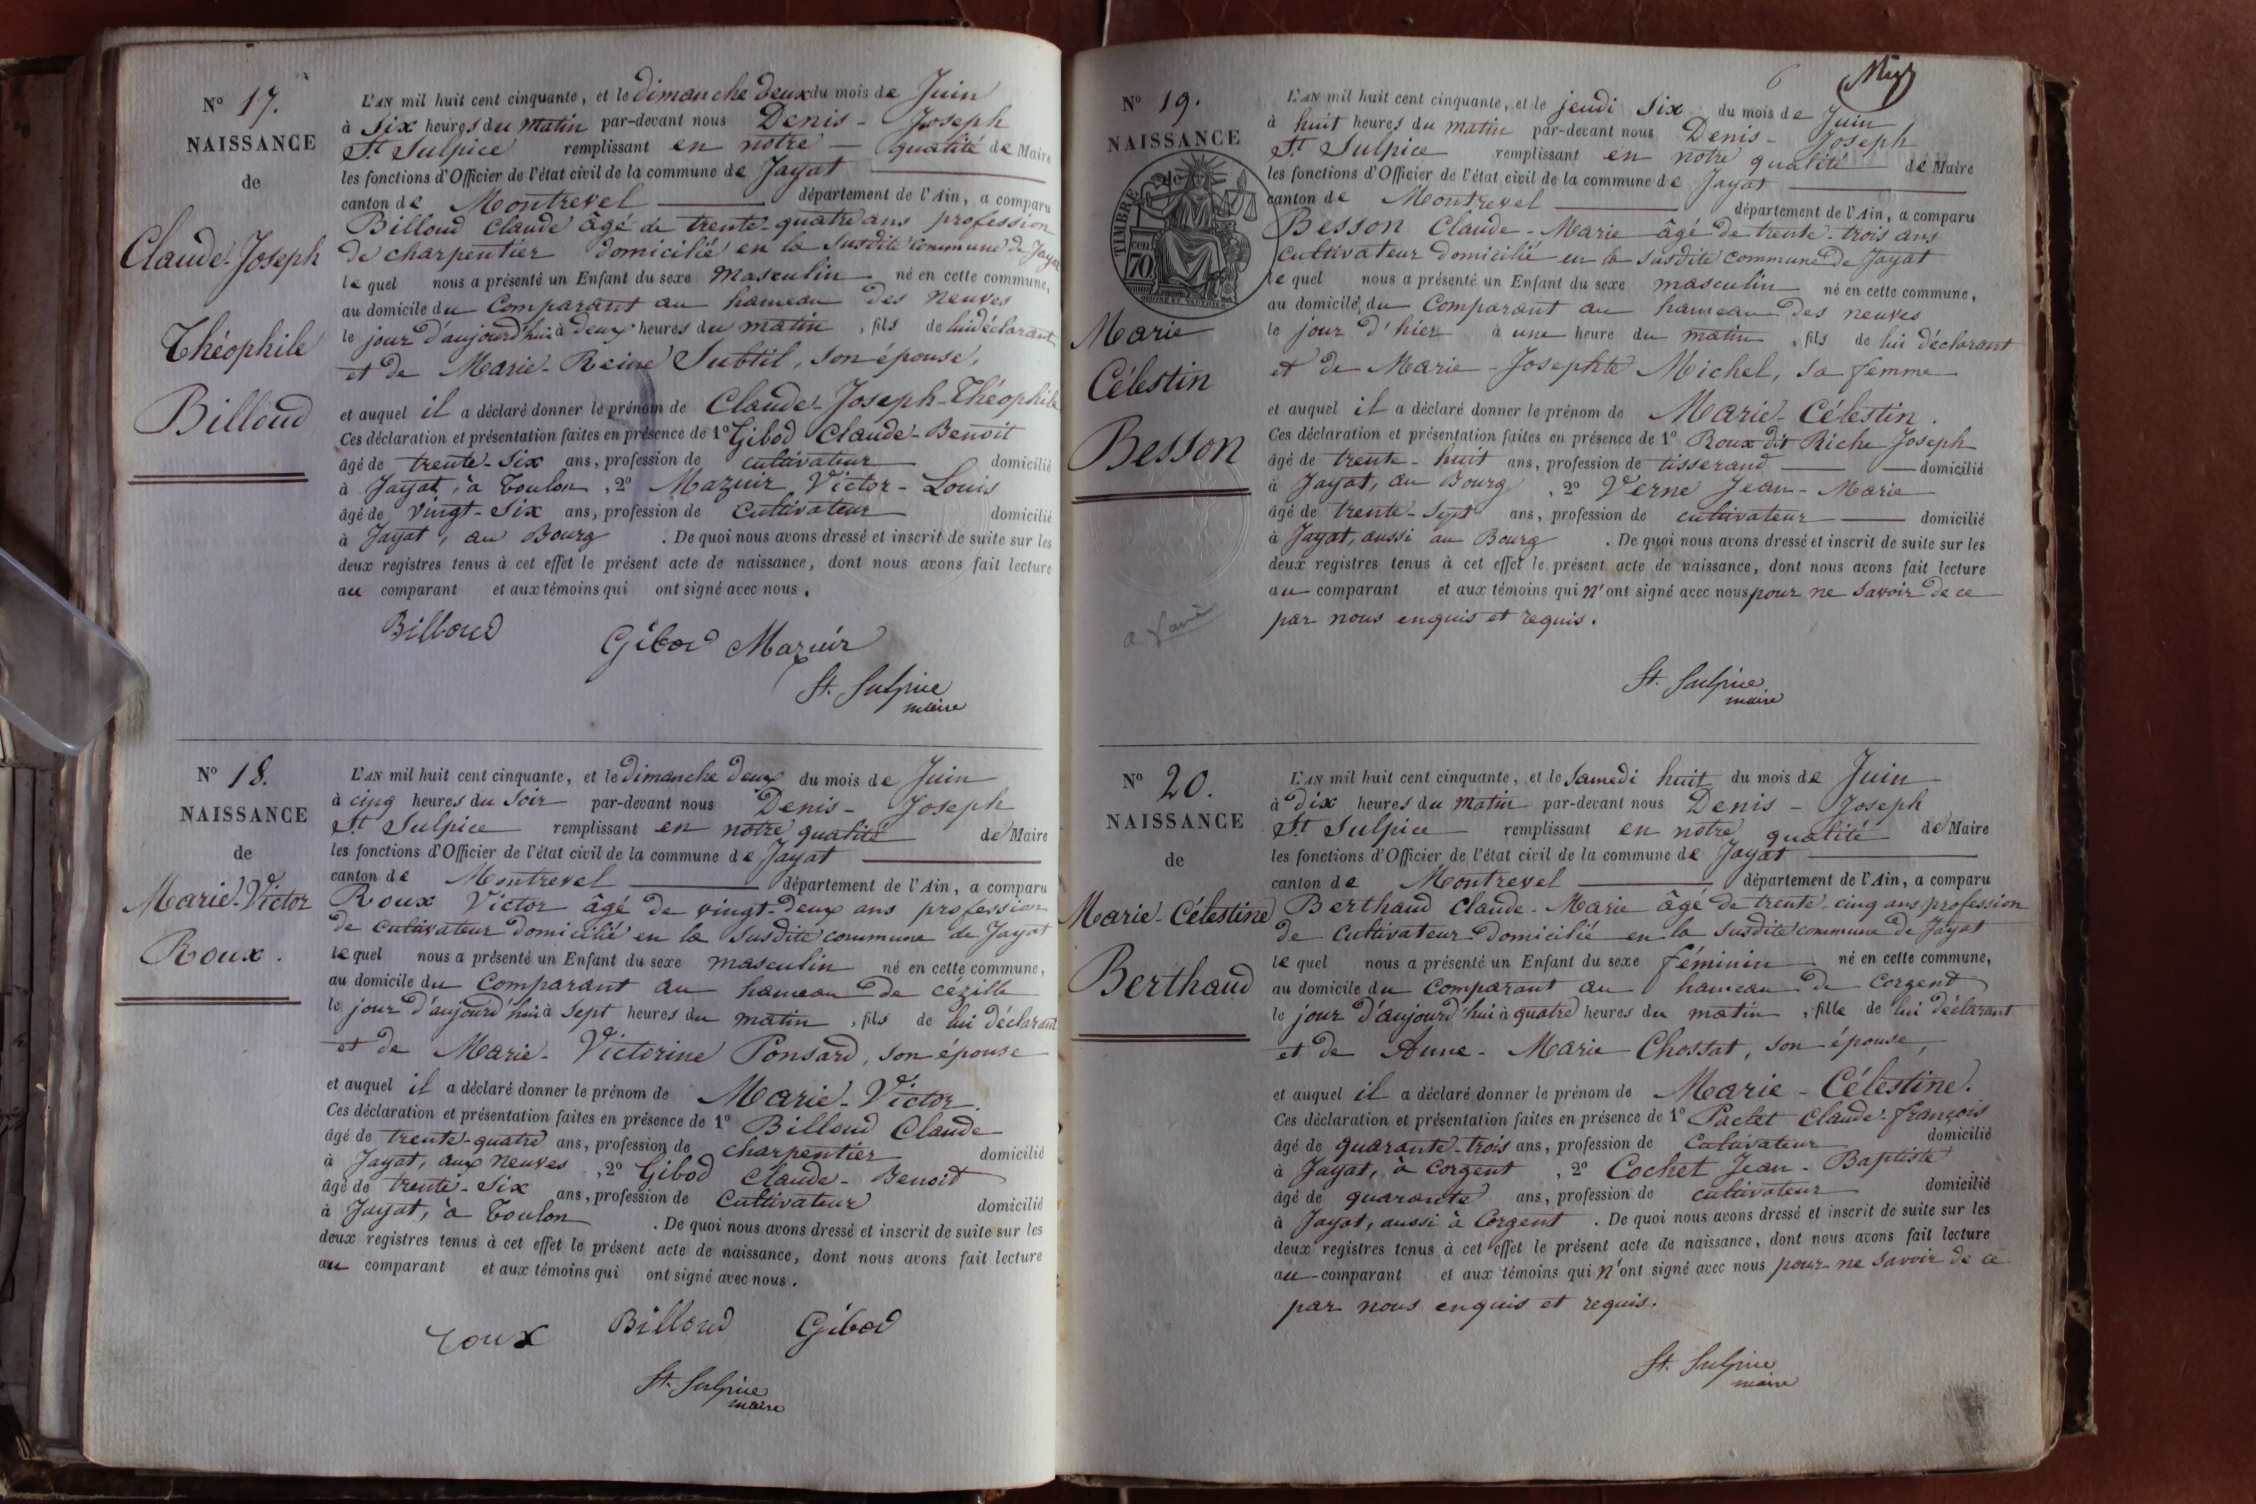 N° 17.
NAISSANCE
de
Claude-Joseph
Théophile
Billoud
L'AN mil huit cent cinquante, et le dimanche deux du mois de Juin
à six heures du matin par-devant nous Denis - Joseph
St Sulpice remplissant en notre qualité de Maire
les fonctions d'Officier de l'état civil de la commune de Jayat
canton de Montrevel département de l'Ain, a comparu
Billoud Claude âgé de trente-quatre ans profession
de charpentier domicilié en la susdite commune de Jayat
lequel nous a présenté un Enfant du sexe masculin né en cette commune,
au domicile du Comparant au hameau des neuves
le jour d'aujourd'hui à deux heures du matin, fils de lui déclarant
et de Marie-Reine Subtil, son épouse,
et auquel il a déclaré donner le prénom de Claude-Joseph-Théophile
Ces déclaration et présentation faites en présence de 1° Gibod Claude-Benoit
âgé de trente-six ans, profession de cultivateur domicilié
à Jayat, à Toulon, 2° Mazuir Victor-Louis
âgé de vingt-six ans, profession de cultivateur domicilié
à Jayat, au Bourg. De quoi nous avons dressé et inscrit de suite sur les
deux registres tenus à cet effet le présent acte de naissance, dont nous avons fait lecture
au comparant et aux témoins qui ont signé avec nous.
Billoud
Gibod Mazuir
St. Sulpice
maire
N° 18.
NAISSANCE
de
Marie-Victor
Roux.
L'AN mil huit cent cinquante, et le dimanche deux du mois de Juin
à cinq heures du soir par-devant nous Denis - Joseph
St Sulpice remplissant en notre qualité de Maire
les fonctions d'Officier de l'état civil de la commune de Jayat
canton de Montrevel département de l'Ain, a comparu
Roux Victor âgé de vingt-deux ans profession
de cultivateur domicilié en la susdite commune de Jayat
lequel nous a présenté un Enfant du sexe masculin né en cette commune,
au domicile du comparant au hameau de cézille
le jour d'aujourd'hui à sept heures du matin, fils de lui déclarant
et de Marie-Victorine Ponsard, son épouse
et auquel il a déclaré donner le prénom de Marie-Victor.
Ces déclaration et présentation faites en présence de 1° Billoud Claude
âgé de trente-quatre ans, profession de charpentier domicilié
à Jayat, aux neuves, 2° Gibod Claude-Benoit
âgé de trente-six ans, profession de cultivateur domicilié
à Jayat, à Toulon. De quoi nous avons dressé et inscrit de suite sur les
deux registres tenus à cet effet le présent acte de naissance, dont nous avons fait lecture
au comparant et aux témoins qui ont signé avec nous.
roux Billoud Gibod
St. Sulpice
maire
6
N° 19.
NAISSANCE
TIMBRE
cen
70
Marie
Célestin
Besson
L'AN mil huit cent cinquante, et le jeudi six du mois de Juin
à huit heures du matin par-devant nous Denis - Joseph
St Sulpice remplissant en notre qualité de Maire
les fonctions d'Officier de l'état civil de la commune de Jayat
canton de Montrevel département de l'Ain, a comparu
Besson Claude-Marie âgé de trente-trois ans
cultivateur domicilié en la susdite commune de Jayat
lequel nous a présenté un Enfant du sexe masculin né en cette commune,
au domicile du Comparant au hameau des neuves
le jour d'hier à une heure du matin, fils de lui déclarant
et de Marie-Josephte Michel, sa femme
et auquel il a déclaré donner le prénom de Marie-Célestin.
Ces déclaration et présentation faites en présence de 1° Roux dit Riche Joseph
âgé de trente-huit ans, profession de tisserand domicilié
à Jayat, au Bourg, 2° Verne Jean-Marie
âgé de trente-sept ans, profession de cultivateur domicilié
à Jayat, aussi au Bourg. De quoi nous avons dressé et inscrit de suite sur les
deux registres tenus à cet effet le présent acte de naissance, dont nous avons fait lecture
au comparant et aux témoins qui n'ont signé avec nous pour ne savoir de ce
par nous enquis et requis.
St. Sulpice
maire
N° 20.
NAISSANCE
de
Marie-Célestine
Berthaud
L'AN mil huit cent cinquante, et le samedi huit du mois de Juin
à dix heures du matin par-devant nous Denis - Joseph
St Sulpice remplissant en notre qualité de Maire
les fonctions d'Officier de l'état civil de la commune de Jayat
canton de Montrevel département de l'Ain, a comparu
Berthaud Claude-Marie âgé de trente-cinq ans profession
de cultivateur domicilié en la susdite commune de Jayat
lequel nous a présenté un Enfant du sexe féminin né en cette commune,
au domicile du comparant au hameau de Corgent
le jour d'aujourd'hui à quatre heures du matin, fille de lui déclarant
et de Anne-Marie Chossat, son épouse,
et auquel il a déclaré donner le prénom de Marie-Célestine.
Ces déclaration et présentation faites en présence de 1° Paclet Claude-François
âgé de quarante-trois ans, profession de cultivateur domicilié
à Jayat, à Corgent, 2° Cochet Jean-Baptiste
âgé de quarante ans, profession de cultivateur domicilié
à Jayat, aussi à Corgent. De quoi nous avons dressé et inscrit de suite sur les
deux registres tenus à cet effet le présent acte de naissance, dont nous avons fait lecture
au comparant et aux témoins qui n'ont signé avec nous pour ne savoir de ce
par nous enquis et requis.
St. Sulpice
maire